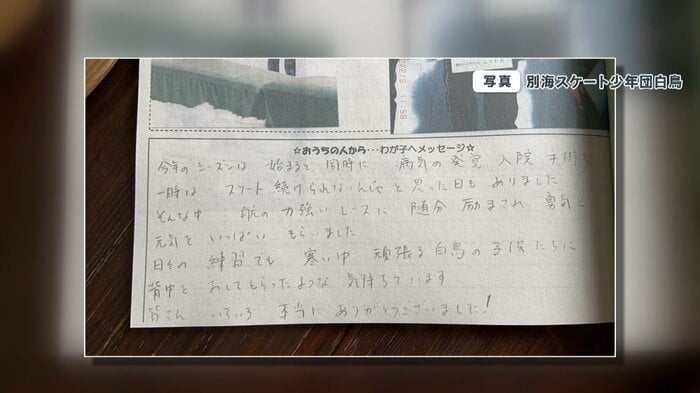 写真 別海スケート少年団白鳥
☆おうちの人から…わが子へメッセージ☆
今年のシーズンは 始まると 同時に 病気の発覚 入院 手術と
一時は スケート 続けられないんじゃと 思った日も ありました
そんな中 航の 力強い レースに 随分 励まされ 勇気と
元気を いっぱい もらいました
日々の 練習でも 寒い中 頑張る 白鳥の 子供たちに
背中を おしてもらったような 気持ちでいます
皆さん いろいろ 本当に ありがとうございました!